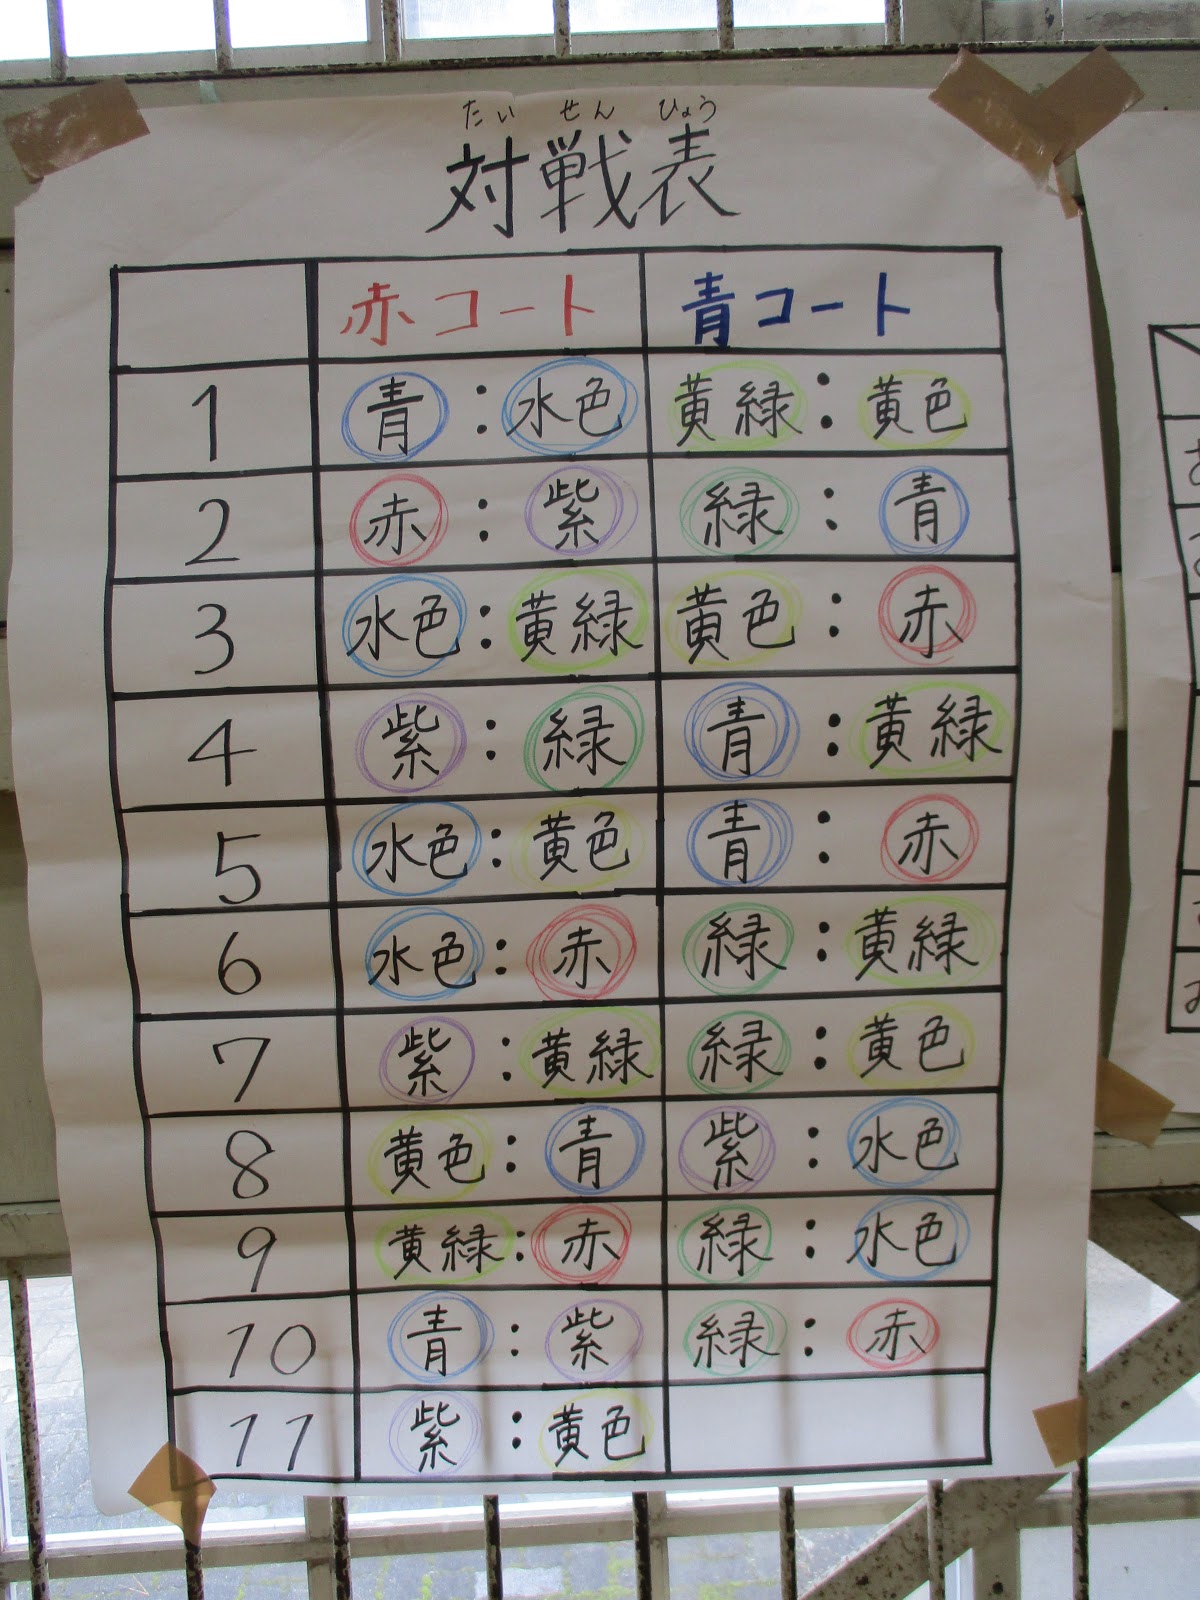 たいせんひょう
対戦表
赤コート 青コート
1 青:水色 黄緑:黄色
2 赤:紫 緑:青
3 水色:黄緑 黄色:赤
4 紫:緑 青:黄緑
5 水色:黄色 青:赤
6 水色:赤 緑:黄緑
7 紫:黄緑 緑:黄色
8 黄色:青 紫:水色
9 黄緑:赤 緑:水色
10 青:紫 緑:赤
11 紫:黄色